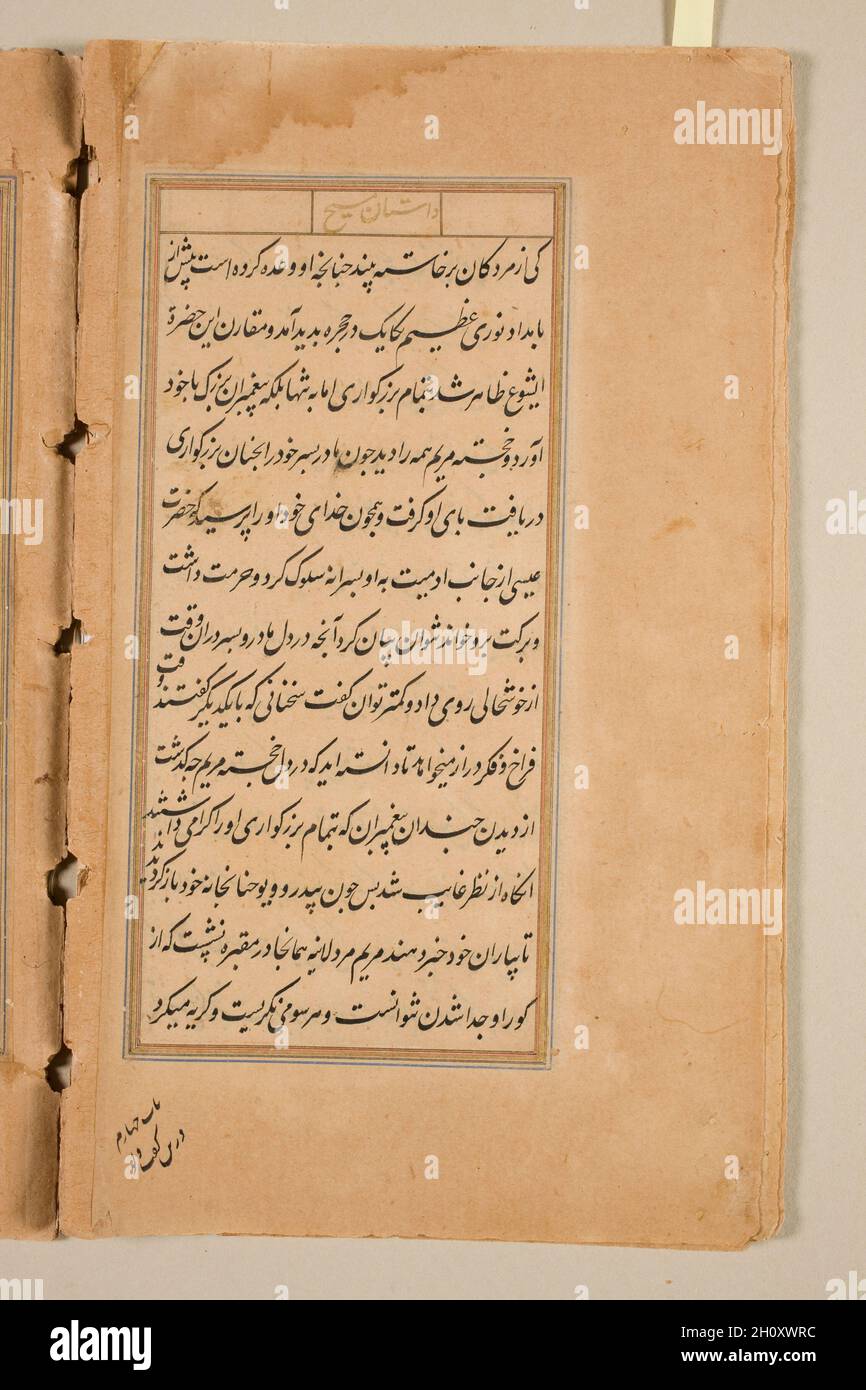 داستان مسیح
کی از مردکان برخاسته بیند جنانجه او وعده کرده است پیش از
بامداد نوری عظیم یکایک در حجره بدید آمد و مقارن این حضرة
ایشوع ظاهر شد بتمام بزرکواری اما نه تنها بلکه پیغمبران بزرک با خود
آورد و خجسته مریم همه را دید جون مادر بسر خود را بجنان بزرکواری
دریافت بای او کرفت و همجون خدای خود او را پرسید کو حضرت
عیسی از جانب ادمیت به او بسرانه سلوک کرد و حرمت داشت
و برکت برو خواند نتوان بیان کرد آنجه در دل مادر و بسر دران وقت
از خوشحالی روی داد و کمتر توان کفت سخنانی که با یکدیکر کفتند وقت
فراخ و فکر دراز میخواهد تا دانسته اید که در دل خجسته مریم جه کذشت
از دیدن جندان پیغمبران که بتمام بزرکواری او را کرامی داشتند
انکاه از نظر غایب شد بس جون پیدرو و یوحنا بخانه خود باز کردیدند
تا بیاران خود خبر دهند مریم مردلانیه همانجا در مقبره نشست که از
کور او جدا شدن نتوانست و هر سو می نکریست و کریه میکرد
باب چهارم
alamy
Image ID: 2H0XWRC
www.alamy.com